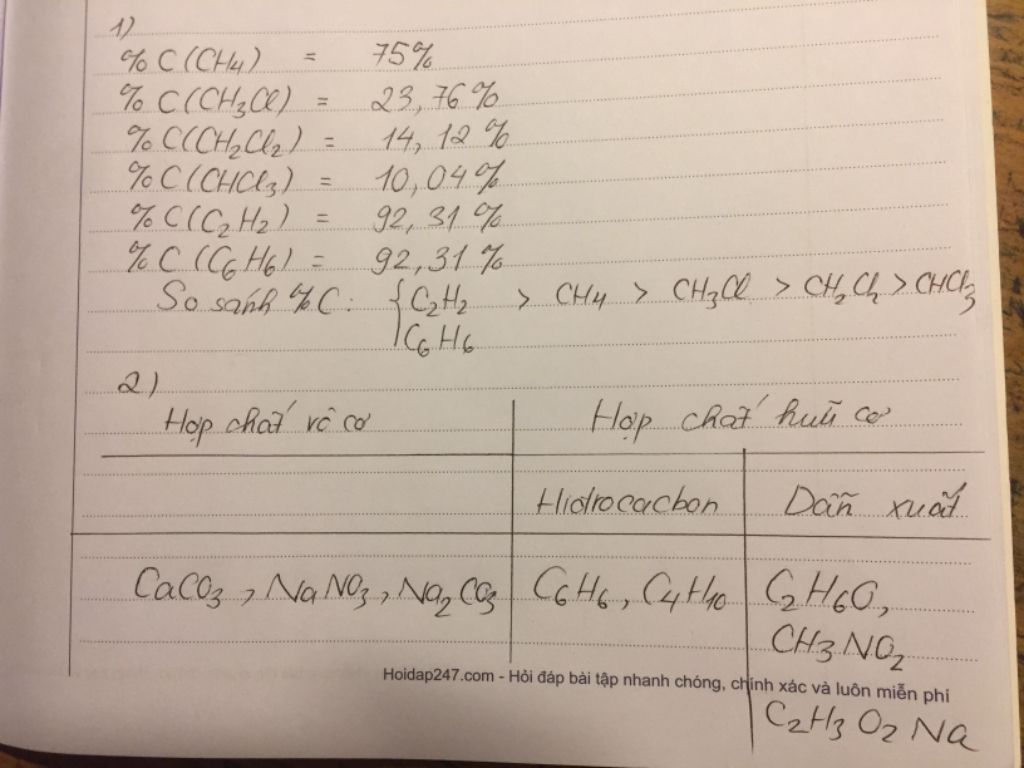 1)
% C (CH4) = 75%
% C (CH3Cl) = 23,76%
% C (CH2Cl2) = 14,12%
% C (CHCl3) = 10,04%
% C (C2H2) = 92,31%
% C (C6H6) = 92,31%
So sánh % C: { C2H2 > CH4 > CH3Cl > CH2Cl2 > CHCl3
C6H6
2)
Hợp chất vô cơ Hợp chất hữu cơ
Hidrocacbon Dẫn xuất
CaCO3, NaNO3, Na2CO3 C6H6, C4H10 C2H6O,
CH3NO2
Hoidap247.com - Hỏi đáp bài tập nhanh chóng, chính xác và luôn miễn phí
C2H3O2Na